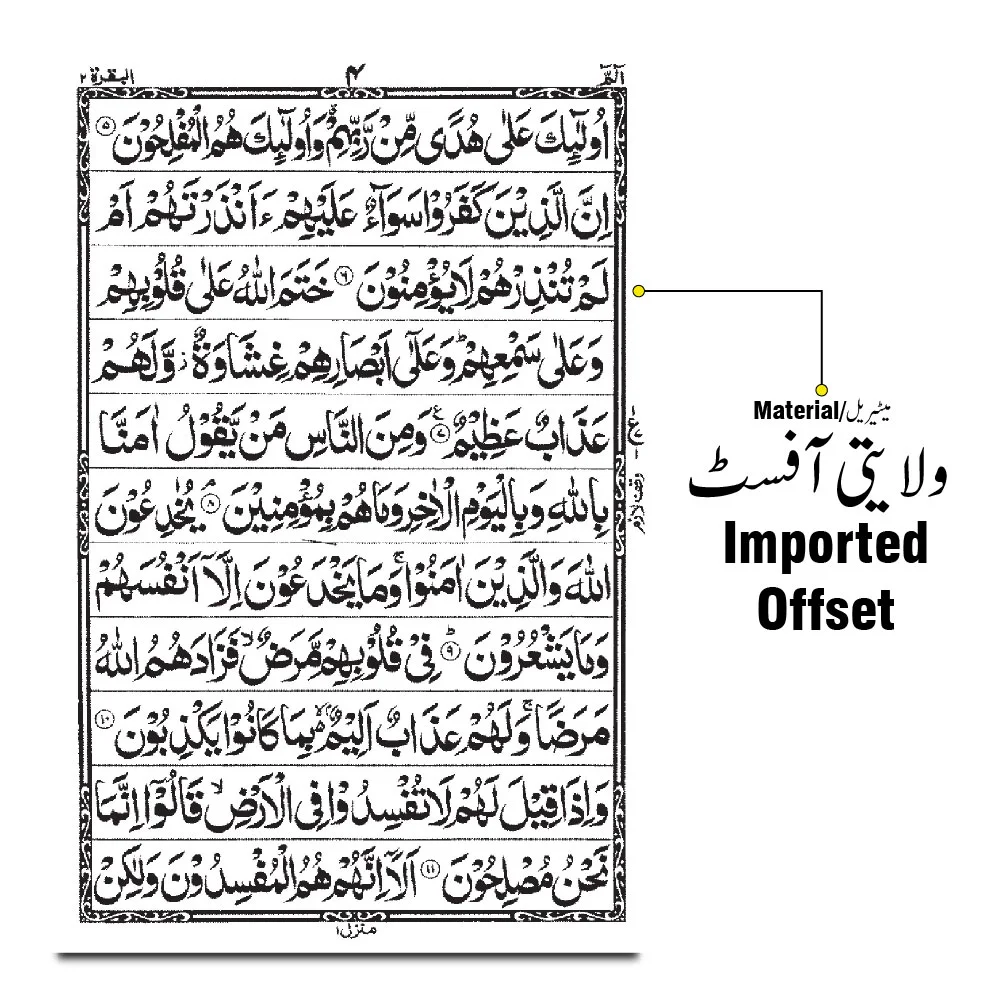 الٓمّٓ ۴ البقرة ٢
اُولٰٓئِكَ عَلٰی هُدًی مِّنْ رَّبِّهِمْ ۗ وَاُولٰٓئِكَ هُمُ الْمُفْلِحُوْنَ ۵
اِنَّ الَّذِيْنَ كَفَرُوْا سَوَآءٌ عَلَيْهِمْ ءَاَنْذَرْتَهُمْ اَمْ
لَمْ تُنْذِرْهُمْ لَا يُؤْمِنُوْنَ ۶ خَتَمَ اللّٰهُ عَلٰی قُلُوْبِهِمْ
وَعَلٰی سَمْعِهِمْ ؕ وَعَلٰٓی اَبْصَارِهِمْ غِشَاوَةٌ ؗ وَّلَهُمْ
عَذَابٌ عَظِيْمٌ ۷ ع وَمِنَ النَّاسِ مَنْ يَّقُوْلُ اٰمَنَّا
بِاللّٰهِ وَبِالْيَوْمِ الْاٰخِرِ وَمَا هُمْ بِمُؤْمِنِيْنَ ۸ ۘ يُخٰدِعُوْنَ
اللّٰهَ وَالَّذِيْنَ اٰمَنُوْا ۚ وَمَا يَخْدَعُوْنَ اِلَّاۤ اَنْفُسَهُمْ
وَمَا يَشْعُرُوْنَ ۹ ؕ فِیْ قُلُوْبِهِمْ مَّرَضٌ ۙ فَزَادَهُمُ اللّٰهُ
مَرَضًا ۚ وَلَهُمْ عَذَابٌ اَلِيْمٌۢ ۙ بِمَا كَانُوْا يَكْذِبُوْنَ ۱۰
وَاِذَا قِيْلَ لَهُمْ لَا تُفْسِدُوْا فِی الْاَرْضِ ۙ قَالُوْٓا اِنَّمَا
نَحْنُ مُصْلِحُوْنَ ۱۱ اَلَاۤ اِنَّهُمْ هُمُ الْمُفْسِدُوْنَ وَلٰكِنْ
منزل ۱
وقف لازم
Material/میٹیریل
ولایتی آفسٹ
Imported
Offset